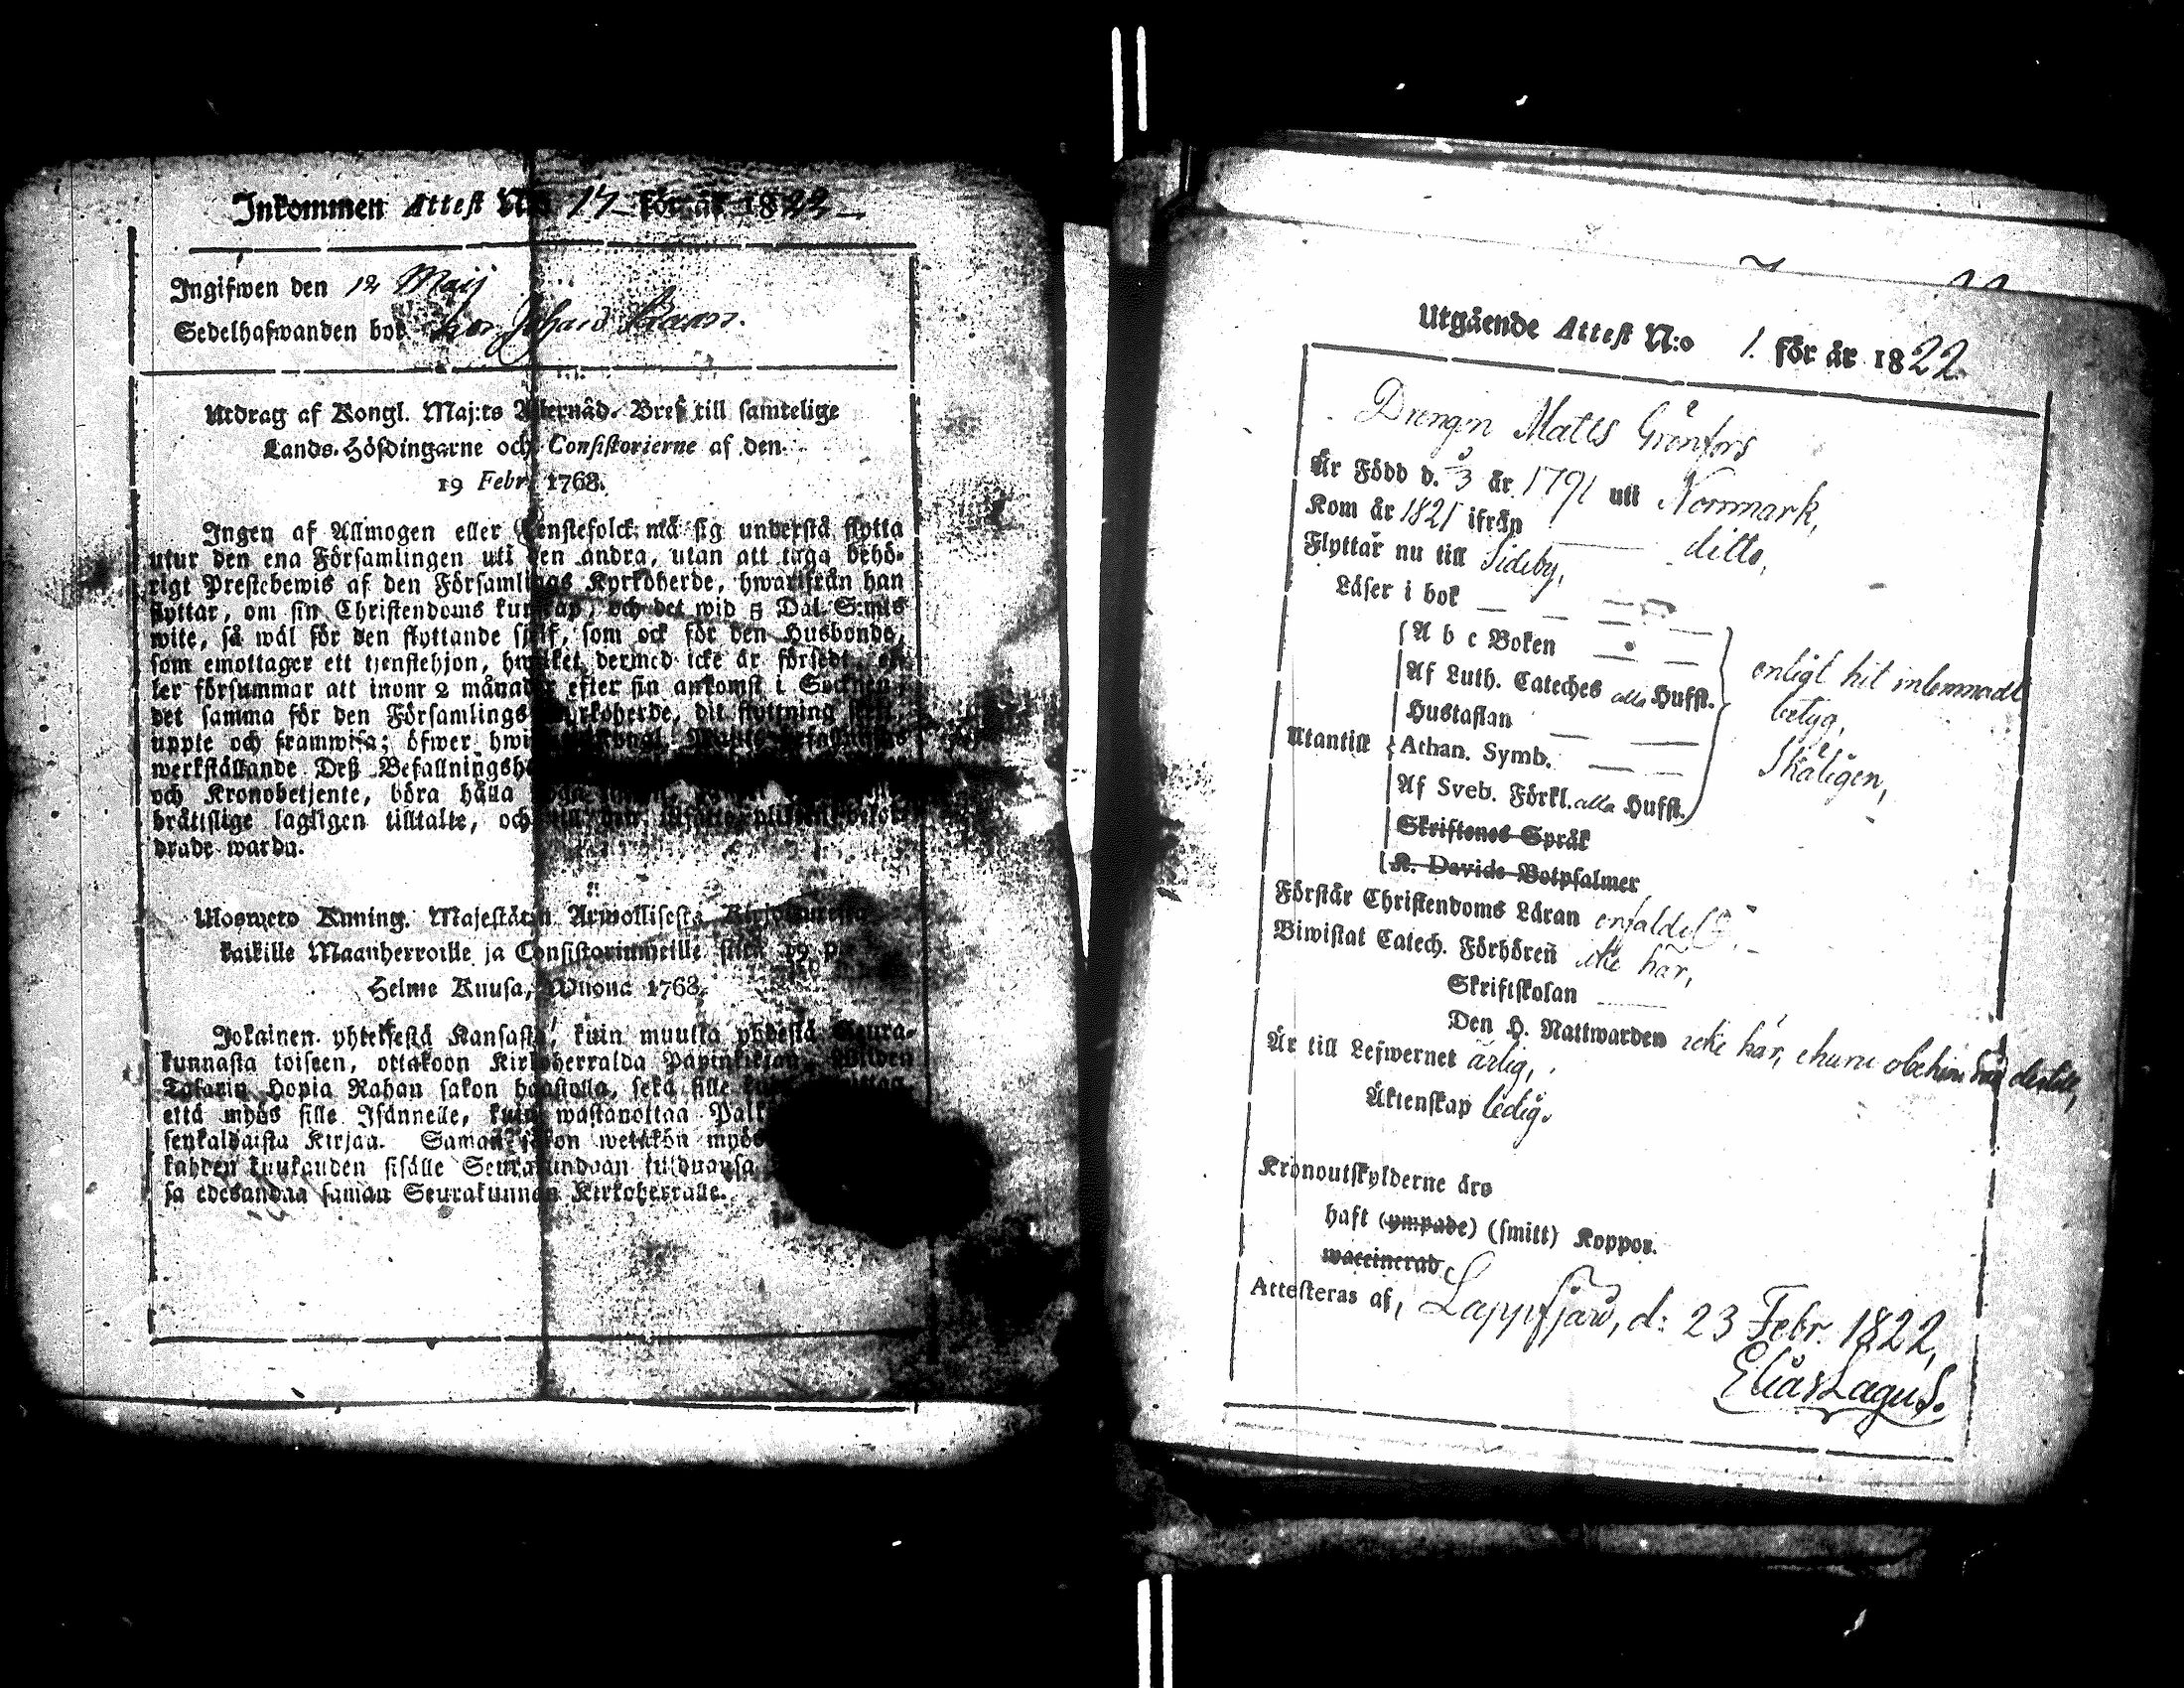 Inkommen Attest N:o 17 för år 1822
Ingifwen den 12 Maij
Sedelhafwanden bor hos Johan
Utdrag af Kongl. Maj:ts Allernåd. Bref till samtelige
Lands-Höfdingarne och Consistorierne af den
19 Febr. 1768.
Ingen af Allmogen eller tjenstefolck må sig understå flytta
utur den ena Församlingen uti den andra, utan att taga behö-
rigt Prestebewis af den Församlings Kyrkoherde, hwarifrån han
flyttar, om sin Christendoms kunskap, och det wid 5 Dal. S:mts
wite, så wäl för den flyttande sielf, som ock för den Husbonde,
som emottager ett tjenstehjon, hwilket dermed icke är försedt, el-
ler försummar att inom 2 månader efter sin ankomst i Socknen,
det samma för den Församlings Kyrkoherde, dit flyttning skett,
uppte och framwisa; öfwer hwilket
werkställande Deß Befallningsh
och Kronobetjente, böra hålla
brätslige lagligen tilltalte, och
drade warda.
Ulosweto Kuning. Majestätin Armollisesta Kirjoituresta
kaikille Maanherroille ja Consistoriumeille siitä 19 p.
Helme Kuusa, Wuona 1768.
Jokainen yhteisestä Kansasta, kuin muutta yhdestä Seura-
kunnasta toiseen, ottakoon Kirkoherralda Papinkirjan, Wiiden
Talarin Hopia Rahan sakon haastolla, sekä sille
että myös sille Isännelle, kuin wastanottaa Palk
senkaldaista Kirjaa. Saman sakon wetäkön myös
kahden kuukauden sisälle Seurakundaan tulduansa
sa edesandaa saman Seurakunnan Kirkoherralle.
Utgående Attest N:o 1. för år 1822
Drengen Matts Grönfors
Är Född d. 3 år 1791 uti Norrmark,
Kom år 1821 ifrån ditto,
Flyttar nu till Sideby,
Läser i bok
A b c Boken
Af Luth. Cateches alla Hufst.
Hustaflan
Utantill Athan. Symb.
Af Sveb. Förkl. alla Hufst.
enligt hit inlemnadt
betyg,
Skäligen,
Skriftenes Språk
K. Davids Botpsalmer
Förstår Christendoms Läran enfaldel.
Biwistat Catech. Förhören icke här,
Skriftskolan
Den H. Nattwarden icke här, ehuru obehindrad dertill,
Är till Lefwernet ärlig,
Äktenskap ledig.
Kronoutskylderne äro
haft (ympade) (smitt) Koppor.
waccinerad
Attesteras af, Lappfjärd, d: 23 Febr. 1822,
Elias Lagus.